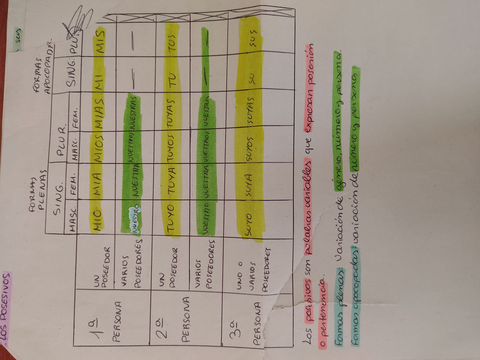 LOS POSESIVOS
FORMAS PLENAS
FORMAS APOCOPADA
SING. PLUR. SING. PLUR
MASC FEM. MASC. FEM.
1ª PERSONA
UN POSEEDOR MIO MIA MIOS MIAS MI MIS
VARIOS POSEEDORES — —
2ª PERSONA
UN POSEEDOR TUYO TUYA TUYOS TUYAS TU TUS
VARIOS POSEEDORES — —
3ª PERSONA
UNO O VARIOS POSEEDORES SUYO SUYA SUYOS SUYAS SU SUS
Los posesivos son palabras variables que expresan posesión
o pertenencia.
Formas plenas: variación de género, número y persona.
Formas apocopadas: variación de número y persona.